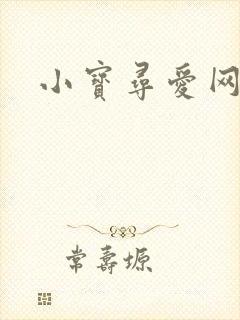 小寶尋愛网
常壽塬